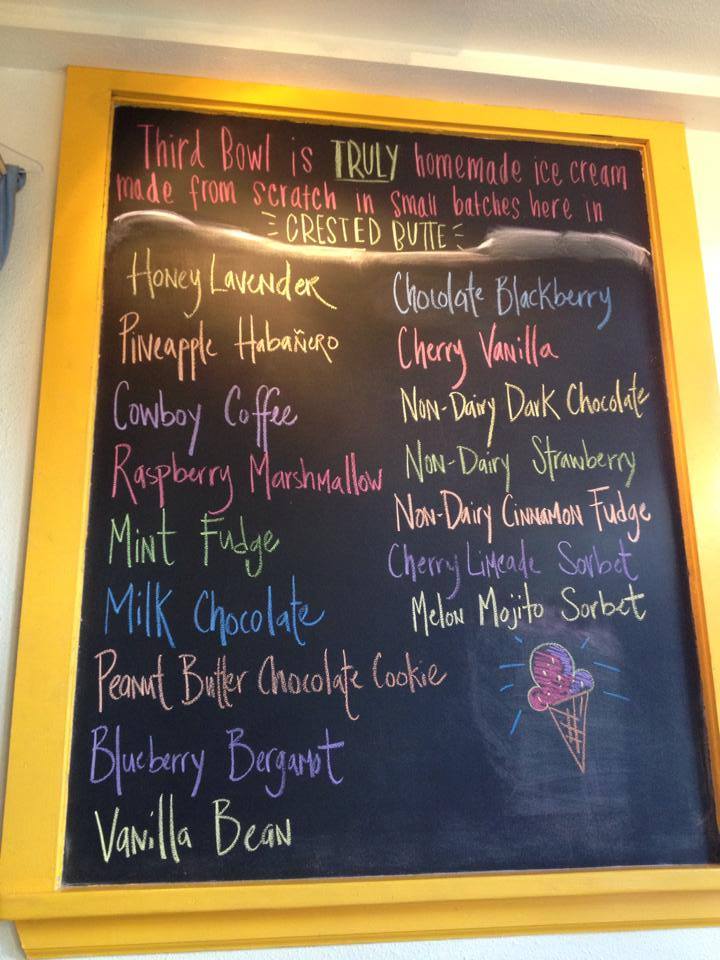 Third Bowl is TRULY homemade ice cream
made from scratch in small batches here in
CRESTED BUTTE
Honey Lavender
Pineapple Habañero
Cowboy Coffee
Raspberry Marshmallow
Mint Fudge
Milk Chocolate
Peanut Butter Chocolate Cookie
Blueberry Bergamot
Vanilla Bean
Chocolate Blackberry
Cherry Vanilla
Non-Dairy Dark Chocolate
Non-Dairy Strawberry
Non-Dairy Cinnamon Fudge
Cherry Limeade Sorbet
Melon Mojito Sorbet